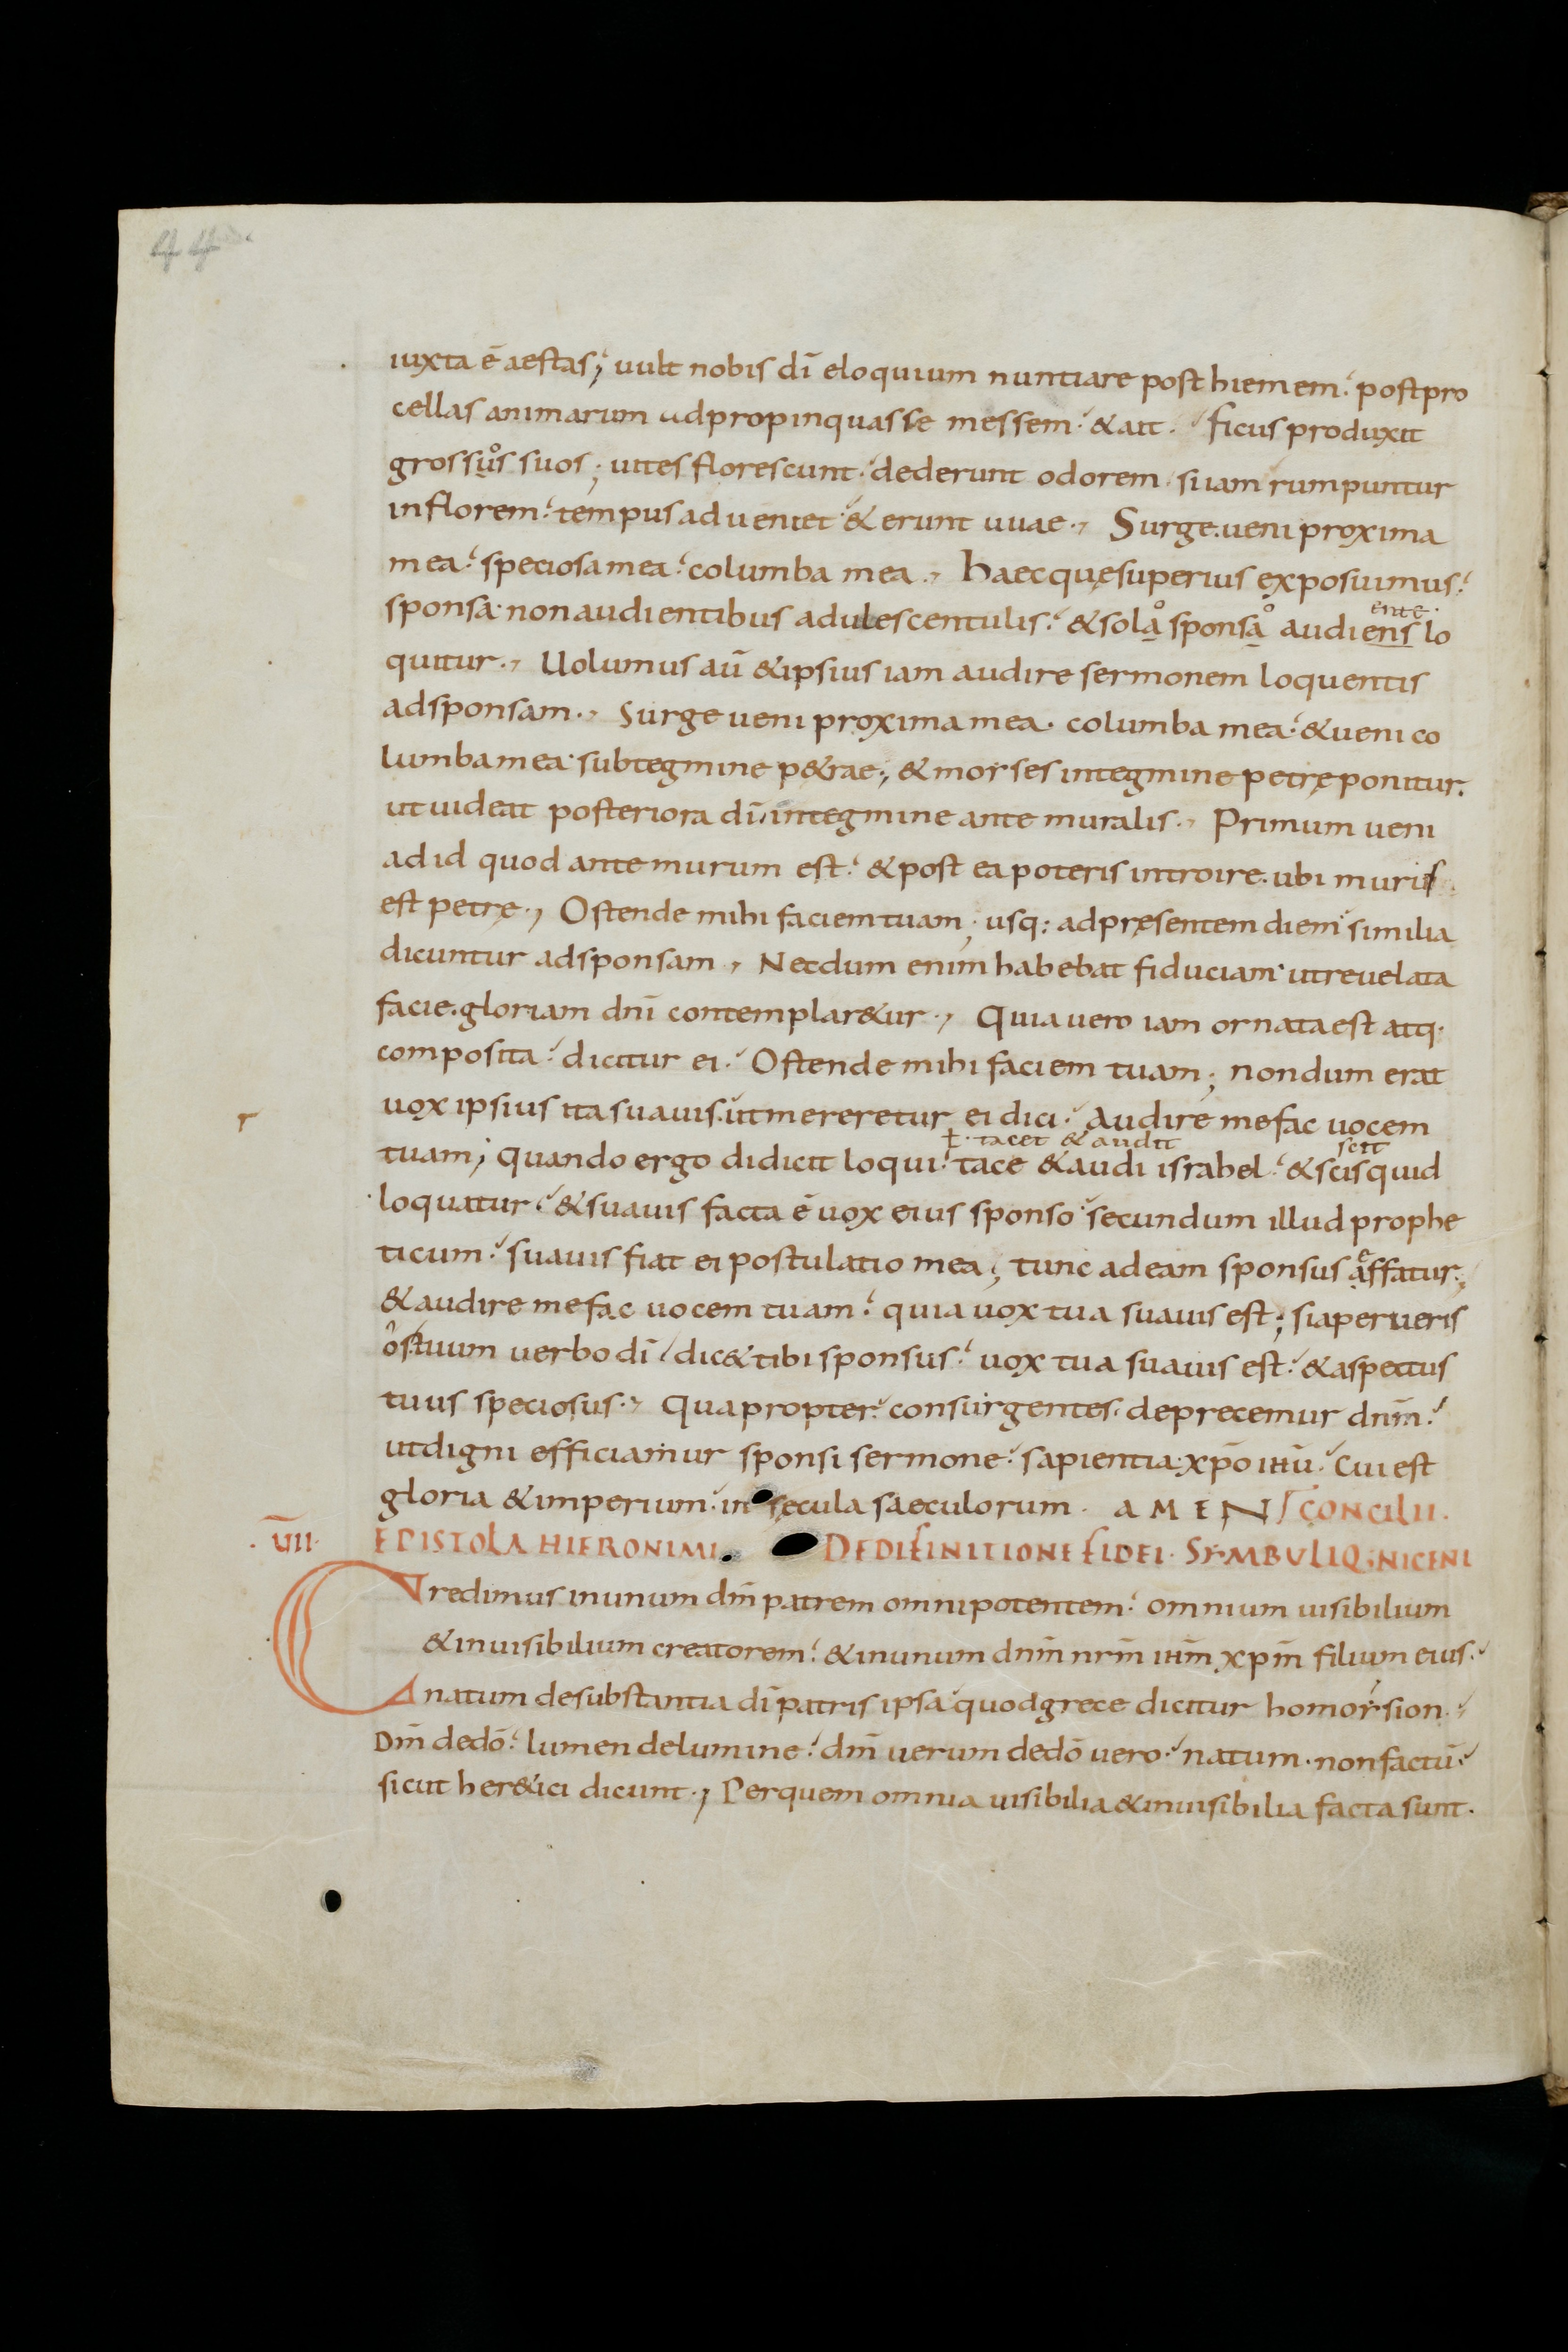 44
iuxta ē aestas; uult nobis dī eloquium nuntiare post hiemem. post pro
cellas animarum adpropinquasse messem. & ait. ficus produxit
grossuos suos; uites florescunt. dederunt odorem. si iam rumpuntur
in florem. tempus adueniet & erunt uuae. Surge. ueni proxima
mea. speciosa mea. columba mea. haec quę superius exposuimus.
ente
sponsa non audientibus adulescentulis. & sola sponsa audiens lo
quitur. Uolumus aū & ipsius iam audire sermonem loquentis
ad sponsam. Surge ueni proxima mea. columba mea. & ueni co
lumba mea sub tegmine p&rae; & morses in tegmine petrę ponitur.
ut uideat posteriora dī. in tegmine ante muralis. Primum ueni
ad id quod ante murum est. & post ea poteris introire. ubi muris
est petrę. Ostende mihi faciem tuam; usq: ad pręsentem diem similia
dicuntur ad sponsam. Necdum enim habebat fiduciam ut reuelata
facie. gloriam dnī contemplar&ur. Quia uero iam ornata est atq.
composita. dicitur ei. Ostende mihi faciem tuam; nondum erat
uox ipsius ita suauis. ut mereretur ei dici. Audire me fac uocem
ł. tacet & audit scit
tuam; quando ergo didicit loqui. tace & audi israhel. & scis quid
loquatur. & suauis facta ē uox eius sponso secundum illud prophe
ticum. suauis fiat ei postulatio mea; tunc ad eam sponsus affatur;
& audire me fac uocem tuam. quia uox tua suauis est; si aperueris
os tuum uerbo dī. dic& tibi sponsus. uox tua suauis est. & aspectus
tuus speciosus. Quapropter consurgentes. deprecemur dnm̄.
ut digni efficiamur sponsi sermone. sapientia. xpō ihū. cui est
gloria & imperium. in sęcula saeculorum. AMEN CONCILII.
.VII. EPISTOLA HIERONIMI. DE DIFINITIONE FIDEI. SYMBULIQ; NICENI
Credimus in unum dm̄ patrem omnipotentem. omnium uisibilium
& inuisibilium creatorem. & in unum dnm̄ nrm̄ ihm̄ xpm̄ filium eius.
natum de substantia dī patris ipsa quod grece dicitur homousion.
Dm̄ de dō. lumen de lumine. dm̄ uerum de dō uero. natum. non factū.
sicut her&ici dicunt. Per quem omnia uisibilia & inuisibilia facta sunt.